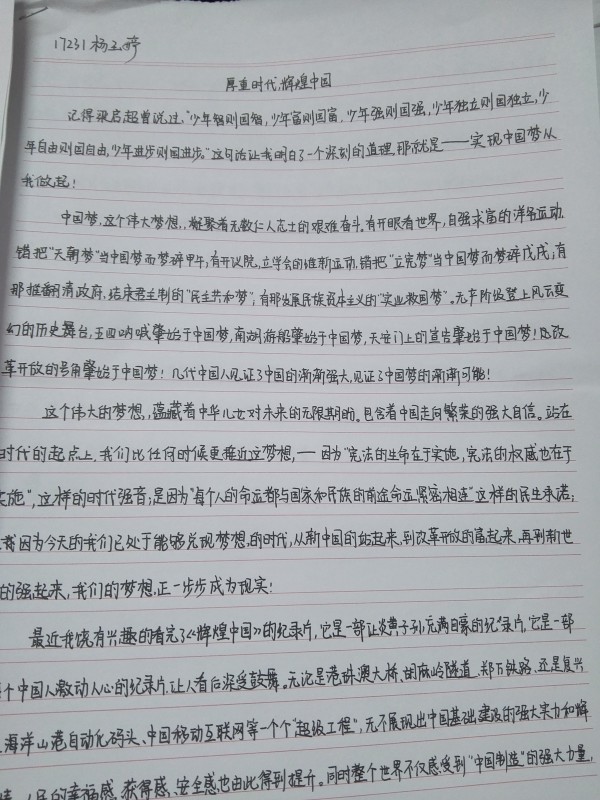 17231 杨玉婷
厚重时代,辉煌中国
记得梁启超曾说过,“少年智则国智,少年富则国富,少年强则国强,少年独立则国独立,少
年自由则国自由,少年进步则国进步。”这句话让我明白了一个深刻的道理,那就是——实现中国梦从
我做起!
中国梦,这个伟大梦想,凝聚着无数仁人志士的艰难奋斗。有开眼看世界,自强求富的洋务运动,
错把“天朝梦”当中国梦而梦碎甲午;有开议院,立学会的维新运动,错把“立宪梦”当中国梦而梦碎戊戌;有
那推翻清政府,结束君主制的“民主共和梦”;有那发展民族资本主义的“实业救国梦”。无产阶级登上风云变
幻的历史舞台,五四呐喊肇始于中国梦,南湖游船肇始于中国梦,天安门上的宣告肇始于中国梦!及改
革开放的号角肇始于中国梦!几代中国人见证了中国的渐渐强大,见证了中国梦的渐渐可能!
这个伟大的梦想,蕴藏着中华儿女对未来的无限期盼。包含着中国走向繁荣的强大自信。站在
时代的起点上,我们比任何时候更接近这梦想,——因为“宪法的生命在于实施,宪法的权威也在于
实施”,这样的时代强音;是因为“每个人的命运都与国家和民族的前途命运紧密相连”这样的民生承诺;
因为今天的我们已处于能够兑现梦想的时代,从新中国的站起来,到改革开放的富起来,再到新世
的强起来,我们的梦想,正一步步成为现实!
最近我饶有兴趣的看完了《辉煌中国》的纪录片,它是一部让炎黄子孙充满自豪的纪录片,它是一部
个中国人激动人心的纪录片,让人看后深受鼓舞。无论是港珠澳大桥、胡麻岭隧道、郑万铁路、还是复兴
海洋山港自动化码头、中国移动互联网等一个个“超级工程”,无不展现出中国基础建设的强大实力和辉
人民的幸福感、获得感、安全感也由此得到提升。同时整个世界不仅感受到“中国制造”的强大力量,